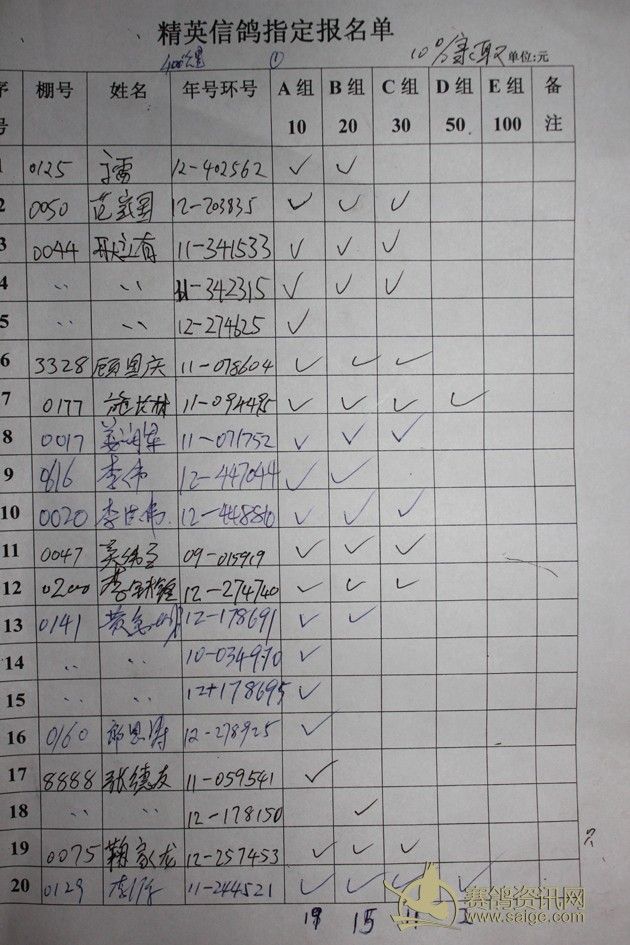 精英信鸽指定报名单
400公里 ① 10% 单位:元
号 棚号 姓名 年号环号 A组 10 B组 20 C组 30 D组 50 E组 100 备注
1 0125 12-402562 ✓ ✓
2 0050 范家国 12-203835 ✓ ✓ ✓
3 0044 11-341533 ✓ ✓ ✓
4 〃 〃 11-342315 ✓ ✓ ✓
5 〃 〃 12-274625 ✓
6 3328 顾国庆 11-078604 ✓ ✓ ✓
7 0177 施长林 11-094495 ✓ ✓ ✓ ✓
8 0017 11-071752 ✓ ✓ ✓
9 0616 李伟 12-447044 ✓ ✓
10 0020 12-448860 ✓ ✓ ✓
11 0047 09-015919 ✓ ✓ ✓
12 0200 12-274740 ✓ ✓ ✓
13 0141 12-178691 ✓ ✓
14 〃 〃 10-034970 ✓
15 〃 〃 12-178695 ✓
16 0160 12-278925 ✓
17 8888 张德友 11-059541 ✓
18 〃 〃 12-178150 ✓
19 0075 12-257453 ✓ ✓ ✓
20 0129 11-244521 ✓ ✓ ✓ ✓
19 15 11 2
赛鸽资讯网
www.saige.com